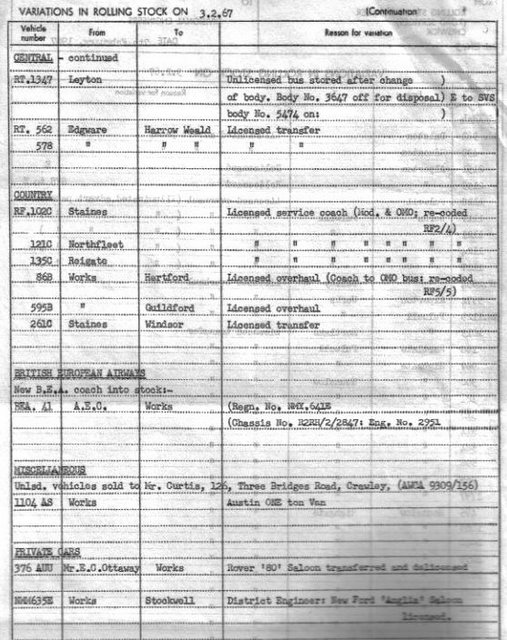 VARIATIONS IN ROLLING STOCK ON 3.2.67 (Continuation
Vehicle number From To Reason for variation
CENTRAL - continued
RT.1347 Leyton Unlicensed bus stored after change )
of body. Body No. 3647 off for disposal) E to SVS
body No. 5474 on: )
RT. 562 Edgware Harrow Weald Licensed transfer
578 " " " " "
COUNTRY
RF.102C Staines Licensed service coach (Mod. & OMO; re-coded
RF2/4)
121C Northfleet " " " " " " " "
135C Reigate " " " " " " " "
86B Works Hertford Licensed overhaul (Coach to OMO bus: re-coded
RF5/5)
595B " Guildford Licensed overhaul
261C Staines Windsor Licensed transfer
BRITISH EUROPEAN AIRWAYS
New B.E.A. coach into stock:-
BEA. 41 A.E.C. Works (Regn. No. NMX.641E
(Chassis No. R2RH/2/2847: Eng. No. 2951
MISCELLANEOUS
Unlsd. vehicles sold to Mr. Curtis, 126, Three Bridges Road, Crawley, (AWDA 9309/156)
1104 AS Works Austin ONE ton Van
PRIVATE CARS
376 AUU Mr.E.C.Ottaway Works Rover '80' Saloon transferred and delicensed
Works Stockwell District Engineer: New Ford 'Anglia' Saloon
licensed.